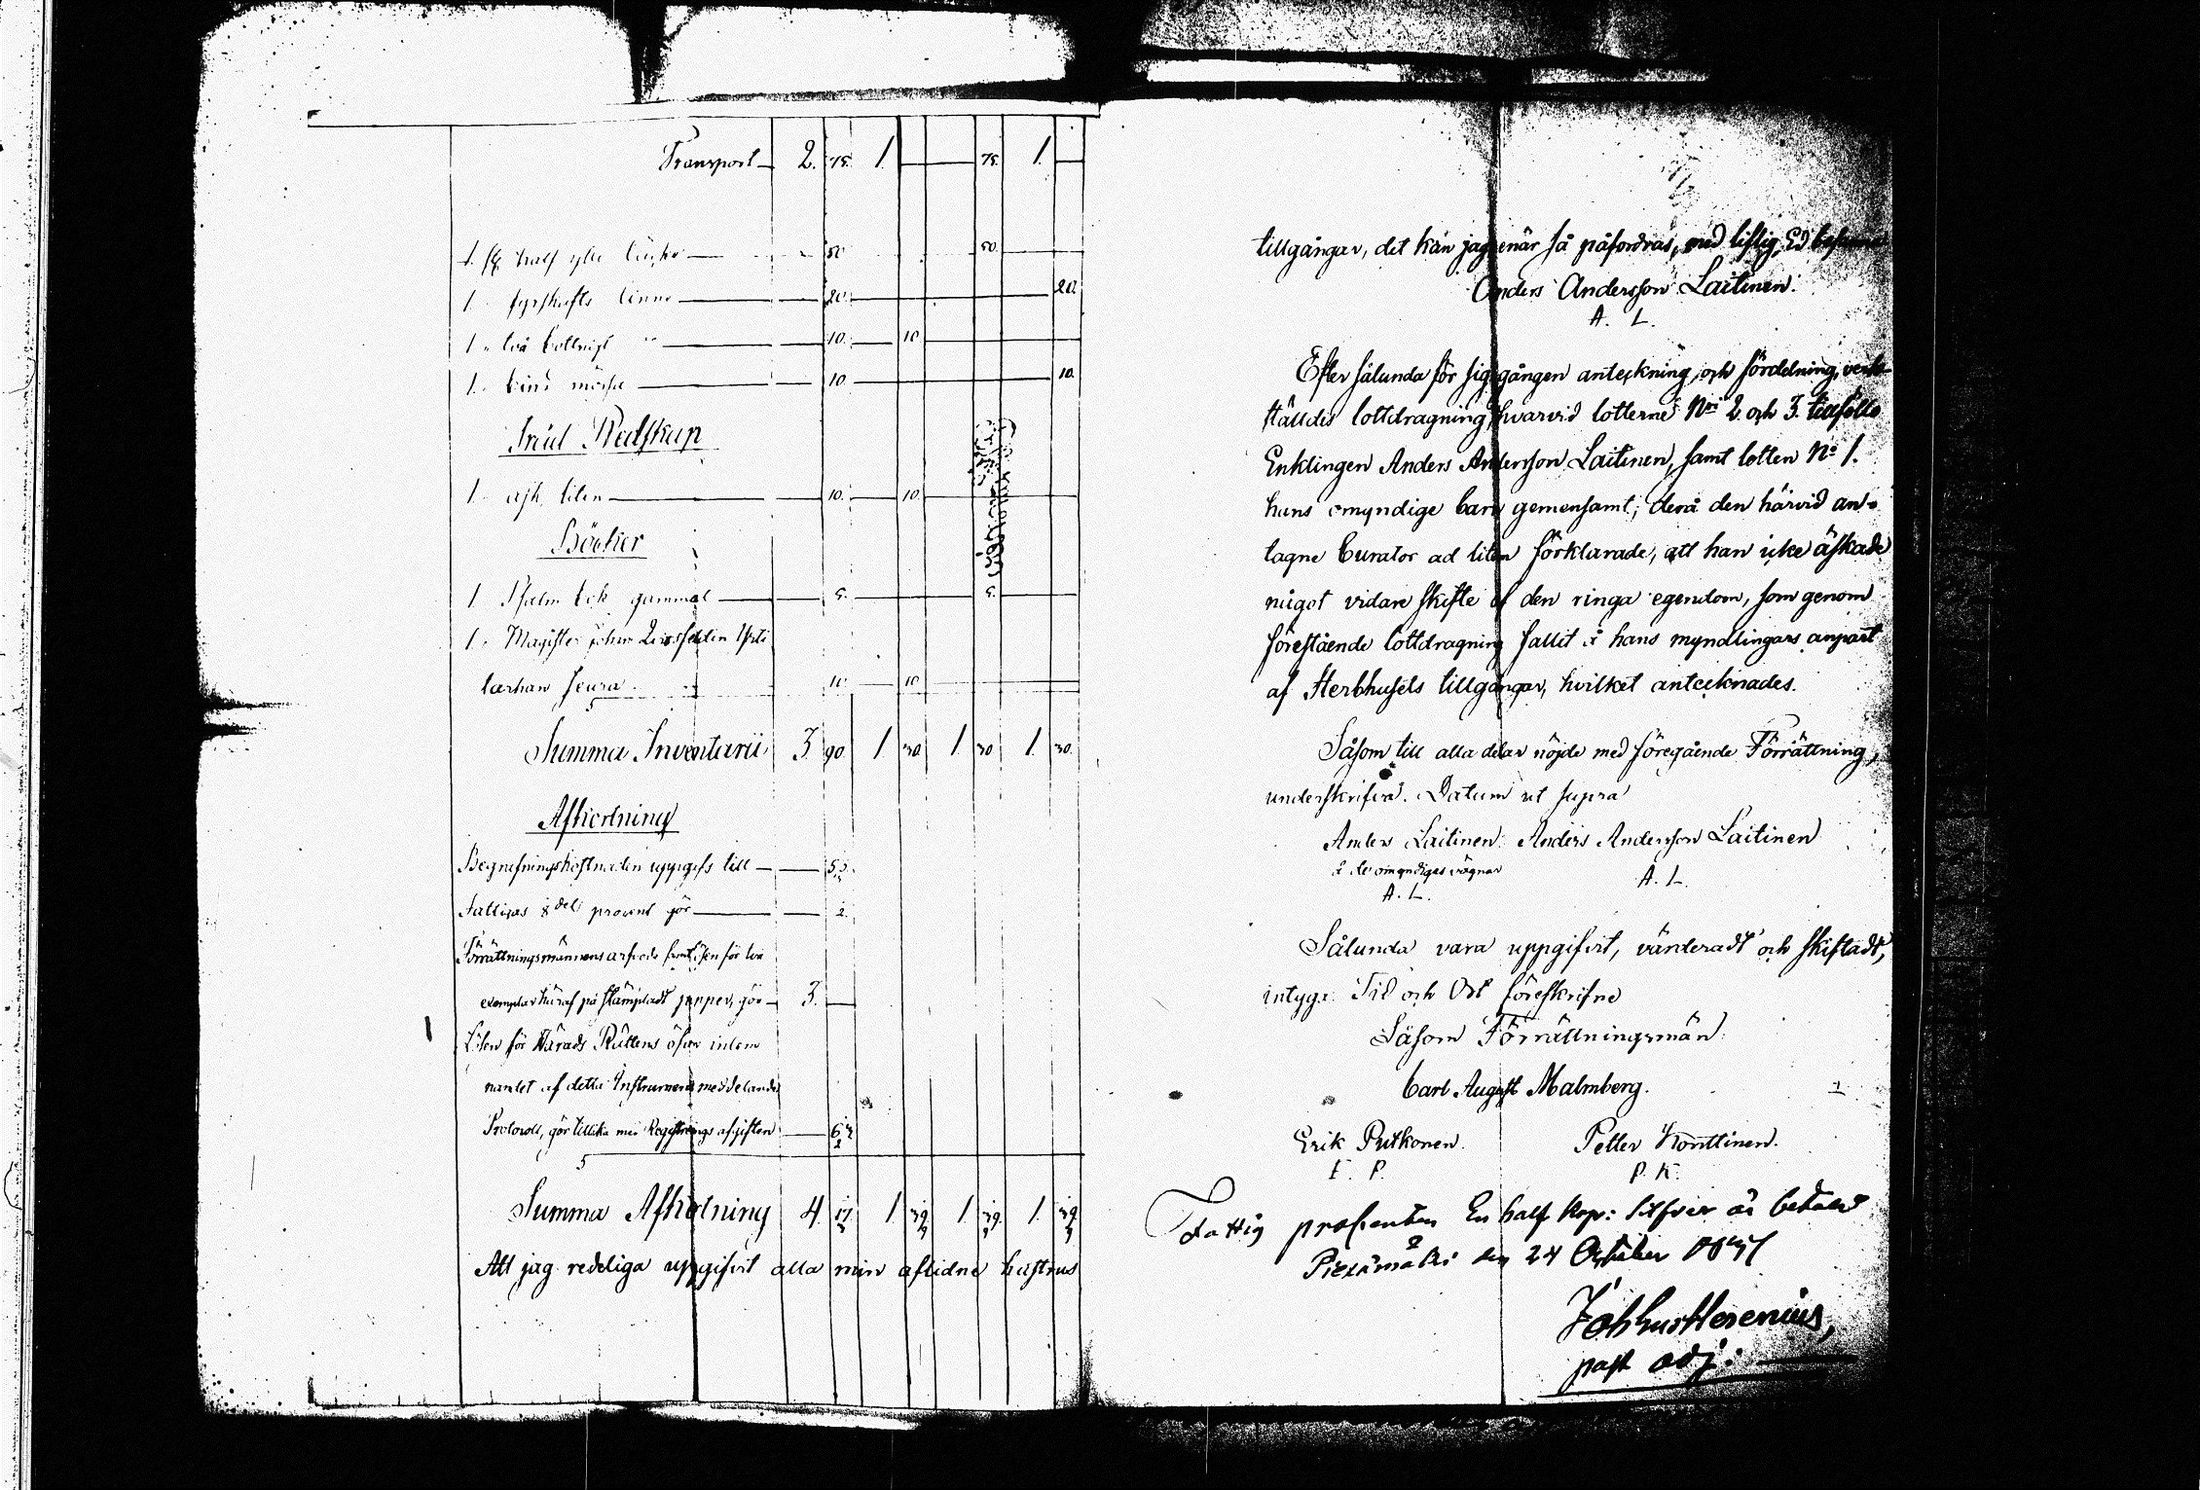 Transport 2. 75. 1. 75. 1.
1. half ylle 50 50.
1. fyrskafts linne 20. 20.
1. två 10. 10
1. bind mössa 10. 10.
Träd Redskap
1. ask liten 10. 10.
Böcker
1. Psalm bok gammal 5. 5.
1. Magister Johan
10 10
Summa Inventarii 3 90 1 30 1. 30 1. 30.
Afkortning
Begrafningskostnaden uppgifs till 55
Fattigas 8 del procent gör 2.
Förrättningsmännens arfvode samt lösen för två
exemplar häraf på stämpladt papper, gör 3.
Lösen för Härads Rättens öfver inlem
nandet af detta Instrument meddelande
Protocoll, gör tillika med Registrerings afgiften
Summa Afkortning 4. 1 1. 1.
Att jag redeliga uppgifvit alla min aflidne hustrus
tillgångar, det kan jag, enär så påfordras, med liflig Ed
Anders Andersson Laitinen.
A. L.
Efter sålunda för sig gången anteckning och fördelning, verk-
ställdes lottdragning, hvarvid lotterne Nri 2 och 3. tillföllo
Enklingen Anders Andersson Laitinen, samt lotten No 1.
hans omyndige barn gemensamt; derå den härvid an-
tagne Curator ad litem förklarade, att han icke äskade
något vidare skifte af den ringa egendom, som genom
förestående lottdragning fallit å hans myndlingars anpart
af Sterbhusets tillgångar, hvilket antecknades.
Såsom till alla delar nöjde med föregående Förrättning,
underskrifva. Datum ut supra
Anders Laitinen. Anders Andersson Laitinen
å de omyndiges vägnar
A. L. A. L.
Sålunda vara uppgifvit, värderadt och skiftadt,
intyga. Tid och Ort föreskrifne
Såsom Förrättningsmän.
Carl August Malmberg.
Erik Putkonen. Petter Konttinen.
E. P. P. K.
Fattig procenten En half Kop: Silfver är betald
den 24 October
past adj: